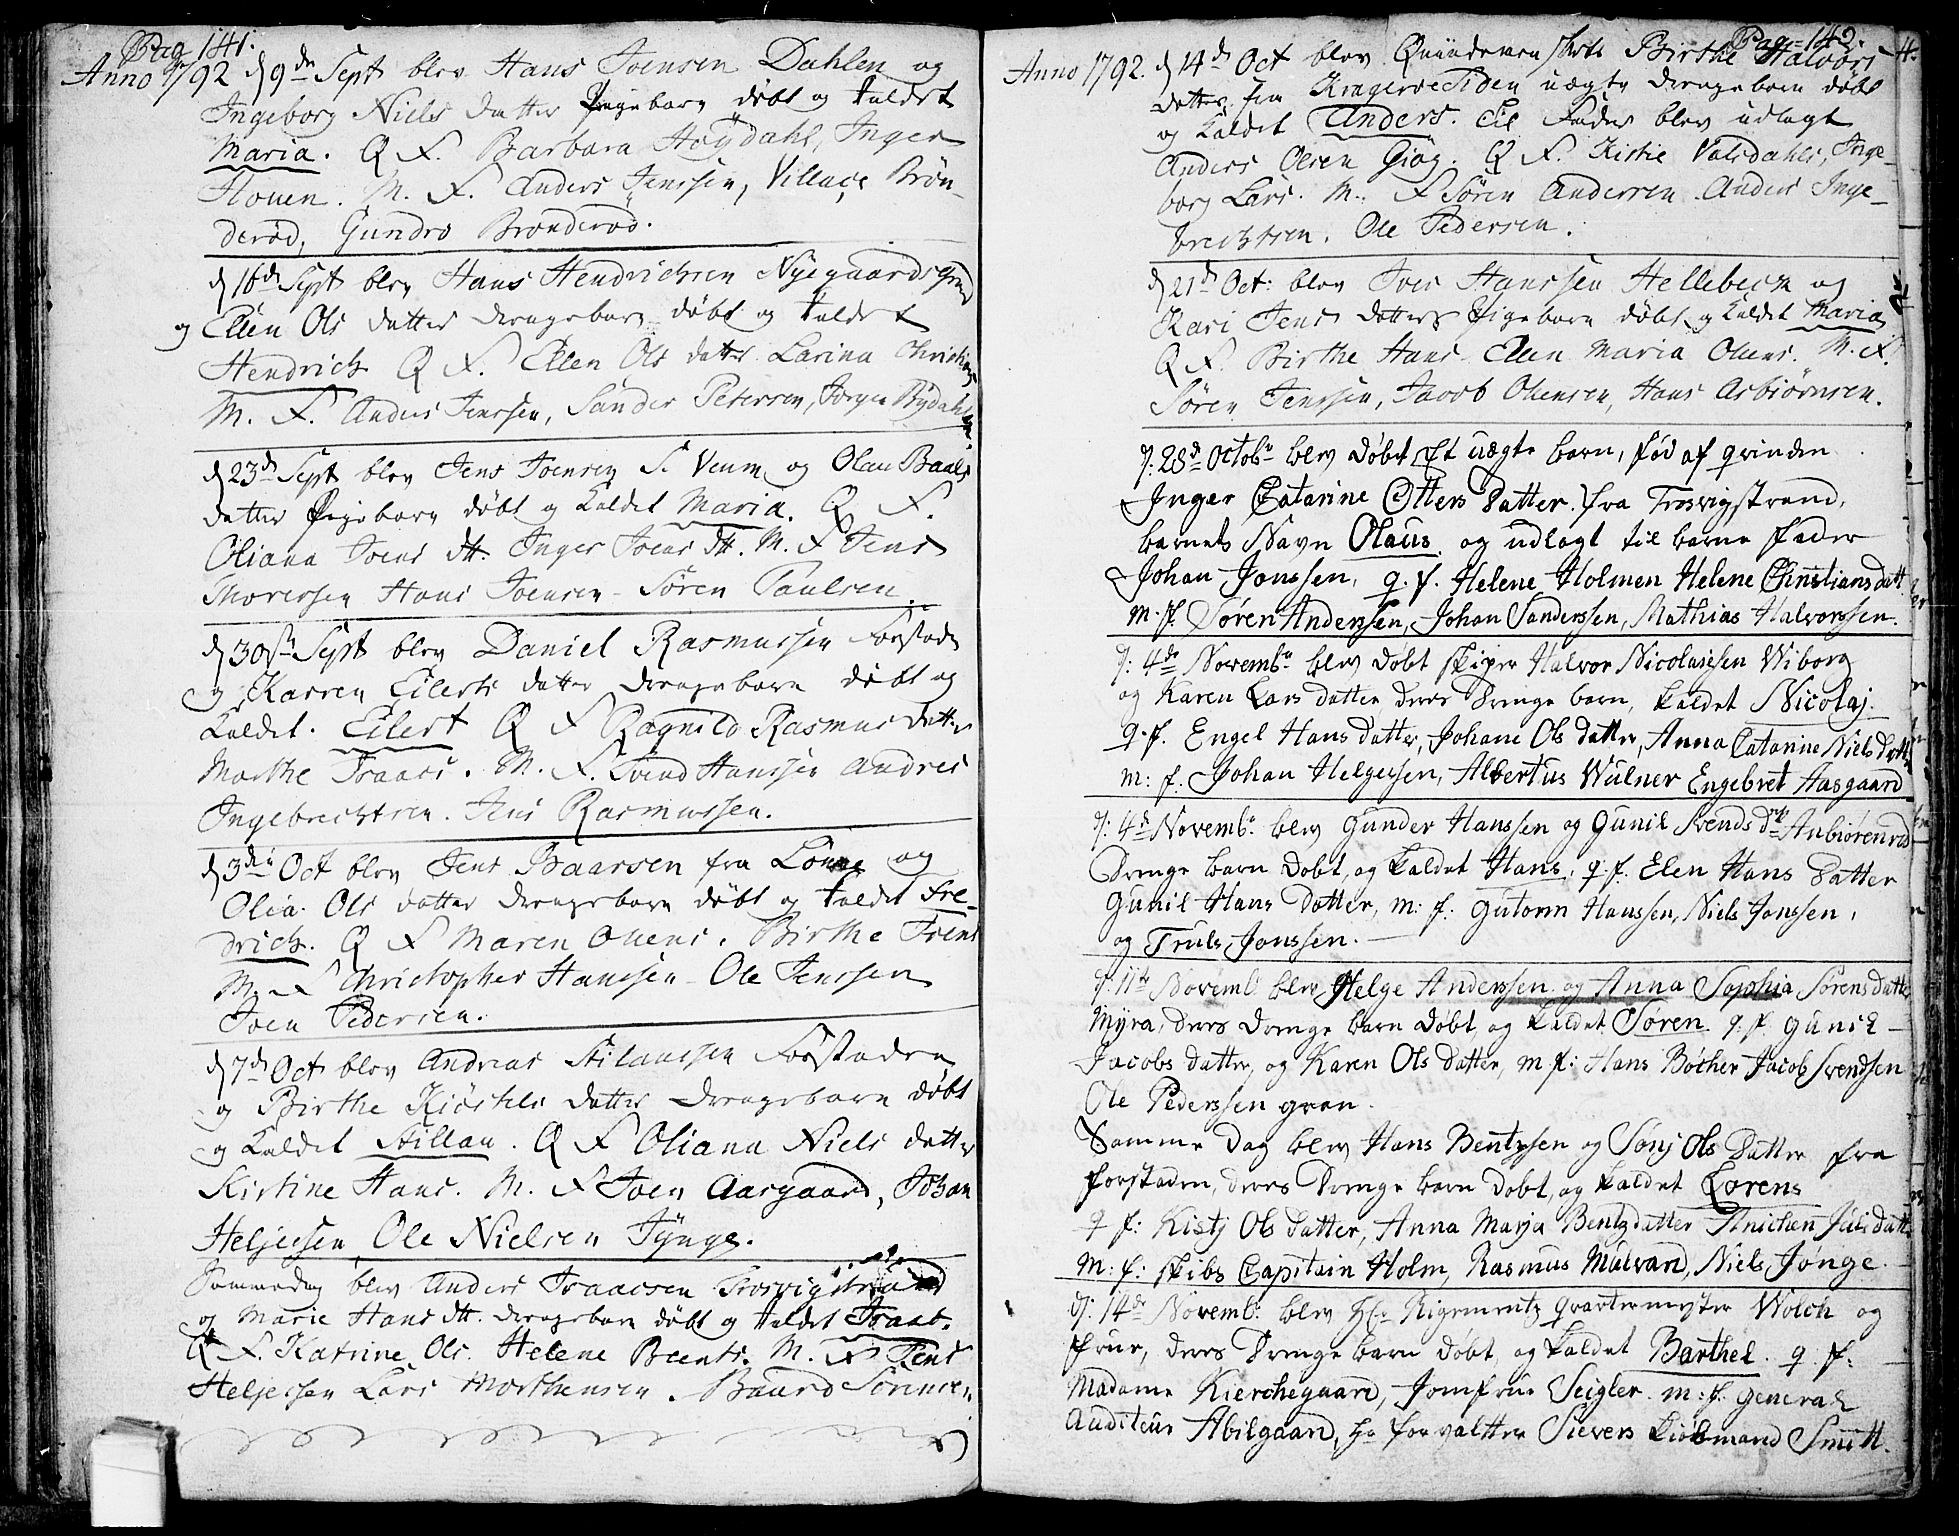 Pag 141.
Anno 1792 d 9de Sept blev Hans Joensen Dahlen og
Ingeborg Niels datter Pigebarn døbt og kaldet
Maria. Q F. Barbara Høydahl, Inger
Houen. M. F. Anders Jenssen, Villace Brön-
derød, Gundro Brønderød.
d 16de Sept blev Hans Hendrichsen Nyegaards
og Ellen Ols datter drengebarn døbt og kaldet
Hendrich Q F. Ellen Ols datter Larina Christians
M. F. Anders Jenssen, Sander Petersen, Jørgen Rydahl
d 23de Sept blev Jens Joensen S. Veum og Olau Baals
datter Pigebarn døbt og kaldet Maria. Q F.
Oliana Joens dtt. Inger Joens dtt. M. F Jens
Thoresen Hans Joensen - Søren Paulsen.
d 30te Sept blev Daniel Rasmussen Forstad
og Karren Eilerts datter drengebarn døbt og
kaldet. Eilert Q F Ragnild Rasmus datter
Marthe Isaacs. M. F. Svend Hanssen Andres
Ingebrechtsen. Jens Rasmussen.
d 3die Oct blev Jens Baarsen fra Lönne og
Olia. Ols datter drengebarn døbt og kaldet Fre-
drich. Q F Maren Ouens. Birthe Ivens
M. F Christopher Hanssen - Ole Jenssen
Joen Pedersen.
d 7de Oct blev Andreas Stilaussen Forstaden
og Birthe Kiøstels datter drengebarn døbt
og kaldet Stillau. Q F Oliana Niels datter
Kirstine Hans. M. F Joen Aasgaard, Johan
Heljessen Ole Nielsen Tÿnge.
Sammedag blev Anders Isaacsen Trosvigstrand
og Marie Hans dtt. drengebarn døbt og kaldet Isaac.
Q F. Katrine Ols. Helene Beents. M. F Jens
Heljessen Lars Morthensen. Baard Sörensen.
Pag: 142.
Anno 1792. d 14de Oct blev Qvindemennesket Birthe Halvors
datter fra Krageroe Tiden uægte drengebarn døbt
og kaldet Anders. Til Fader blev udlagt
Anders Olsen Giøg. Q F. Kistie Valsdahls, Inge-
borg Lars. M. F Søren Andersen. Anders Inge-
brechtsen. Ole Pedersen.
d 21de Oct: blev Iver Hanssen Hellebech og
Kari Jens datters Pigebarn døbt og kaldet Maria
Q F. Birthe Hans Ellen Maria Ouens. M. F.
Søren Jenssen, Jacob Ouensen, Hans Asbiørnsen.
d: 28de Octobr blev døbt Et uægte barn, fød af qvinden
Inger Catarine Otters Datter fra Trosvigstrand,
barnets Navn Olaus og udlagt til barne fader
Johan Jonssen, q. f. Helene Holmen Helene Christians datt
m. f. Søren Anderssen, Johan Sanderssen, Mathias Halvorssen.
d: 4de Novembr blev døbt skiper Halvor Nicolaisen Wiborg
og Karen Lars datter deres Drenge barn, kaldet Nicolaj.
q. f. Engel Hans datter, Johane Ols datter, Anna Catarine Niels datter
m: f: Johan Helgessen, Albertus Wulner Engebret Aasgaard
d: 4de Novembr. blev Gunder Hanssen og Gunil Svends dtr Anbiørenrød
Drenge barn døbt, og kaldet Hans. q. f. Elen Hans Datter
Gunil Hans Datter, m: f: Gutorm Hanssen, Niels Jonssen,
og Truls Jonssen.
d: 11te Novemb: blev Helge Anderssen og Anna Sophia Sørens datter
Myra, deres Drenge barn døbt og kaldet Søren. q. f. Gunil
Jacobs datter, og Karen Ols datter, m f: Hans Bøther Jacob Svendsen
Ole Pederssen gran.
Samme Dag blev Hans Bentzsen og Sønj Ols Datter fra
forstaden, deres Drenge barn døbt, og kaldet Lorens
q f: Kistj Ols Datter, Anna Marja Bentzdatter Anichen Julsdatter
M: f: skibs Capitain Holm, Rasmus Mulvard, Niels Jønge.
d: 14de Novemb: blev Hr Rigements qvartermester Wolch og
frue, deres Drenge barn døbt, og kaldet Barthel. q. f:
Madame Kierchegaard, Jomfrue Seigler. m: f. General
Auditeur Abilgaard, Hr forvaltter Sievers kiøbmand Smitt.